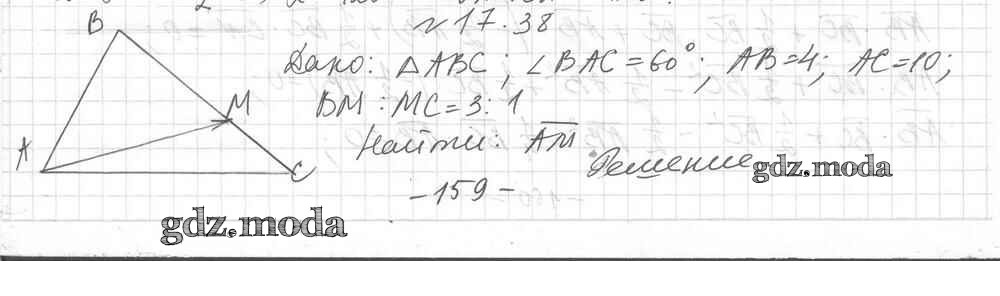 B
N 17.38
Дано: △ABC; ∠BAC = 60°; AB=4; AC=10;
M
BM : MC = 3 : 1
A
Найти: A̅M̅
C
Решение
gdz.moda
- 159 -
gdz.moda